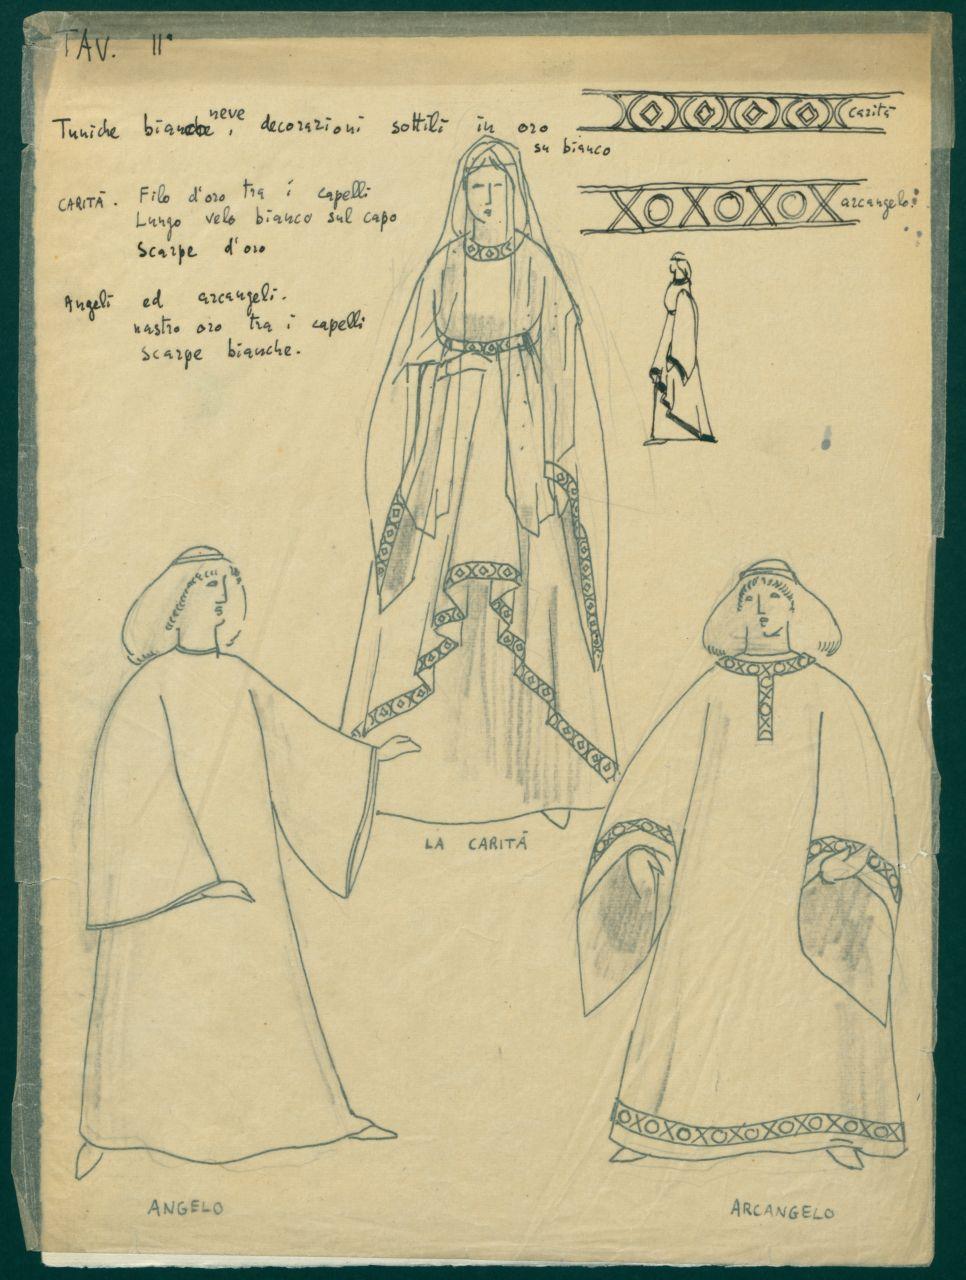 TAV. II°
Tuniche bianche neve, decorazioni sottili in oro
su bianco
carità
arcangelo
CARITÀ. Filo d'oro tra i capelli
Lungo velo bianco sul capo
Scarpe d'oro
Angeli ed arcangeli.
nastro oro tra i capelli
Scarpe bianche.
LA CARITÀ
ANGELO
ARCANGELO